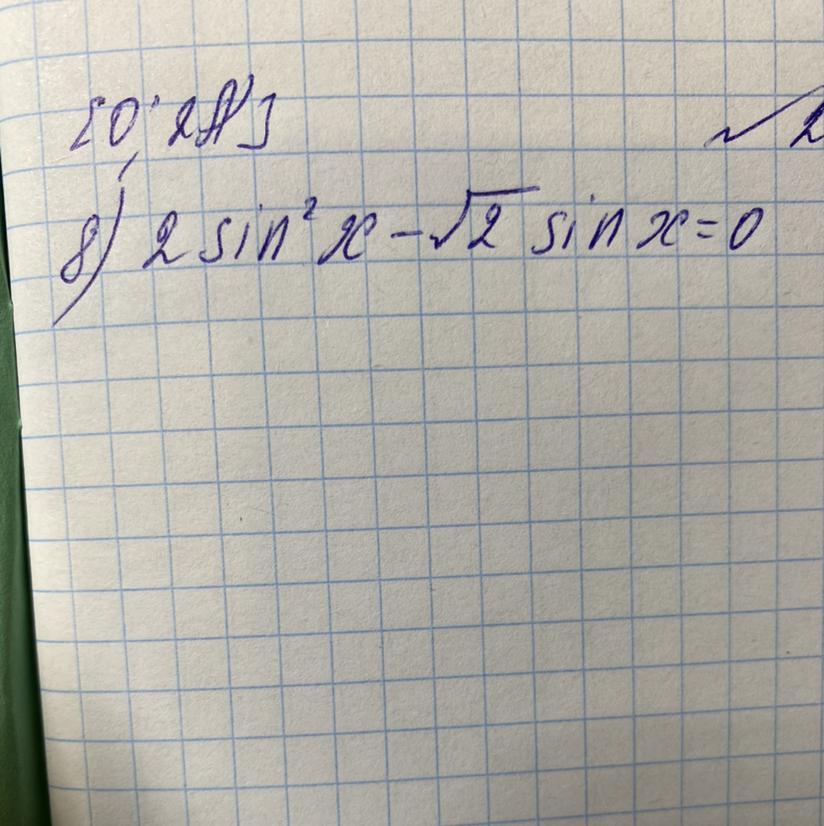 [0; 2π] √2
8) 2 sin² x - √2 sin x = 0